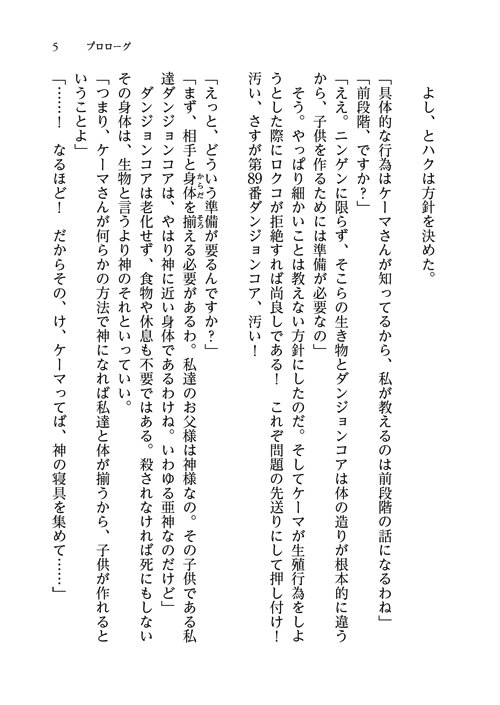 5　プロローグ
よし、とハクは方針を決めた。
「具体的な行為はケーマさんが知ってるから、私が教えるのは前段階の話になるわね」
「前段階、ですか？」
「ええ。ニンゲンに限らず、そこらの生き物とダンジョンコアは体の造りが根本的に違う
から、子供を作るためには準備が必要なの」
そう。やっぱり細かいことは教えない方針にしたのだ。そしてケーマが生殖行為をしよ
うとした際にロクコが拒絶すれば尚良しである！　これぞ問題の先送りにして押し付け！
汚い、さすが第89番ダンジョンコア、汚い！
「えっと、どういう準備が要るんですか？」
「まず、相手と身体からだを揃そろえる必要があるわ。私達のお父様は神様なの。その子供である私
達ダンジョンコアは、やはり神に近い身体であるわけね。いわゆる亜神なのだけど」
ダンジョンコアは老化せず、食物や休息も不要ではある。殺されなければ死にもしない
その身体は、生物と言うより神のそれといっていい。
「つまり、ケーマさんが何らかの方法で神になれば私達と体が揃うから、子供が作れると
いうことよ」
「……！　なるほど！　だからその、け、ケーマってば、神の寝具を集めて……」